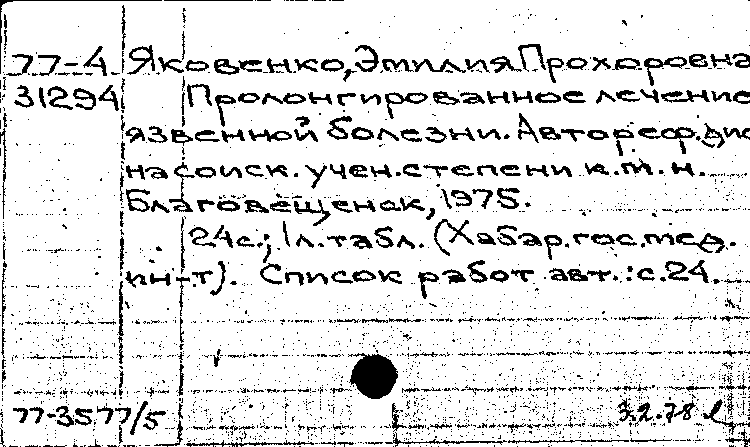 77-4 Яковенко, Эмилия Прохоровна
31294 Пролонгированное лечение
язвенной болезни. Автореф. дис
на соиск. учен. степени к.м.н.
Благовещенск, 1975.
24с.; 1л. табл. (Хабар. гос. мед.
ин-т). Список работ авт.: с.24.
77-3577/5 3.2.78